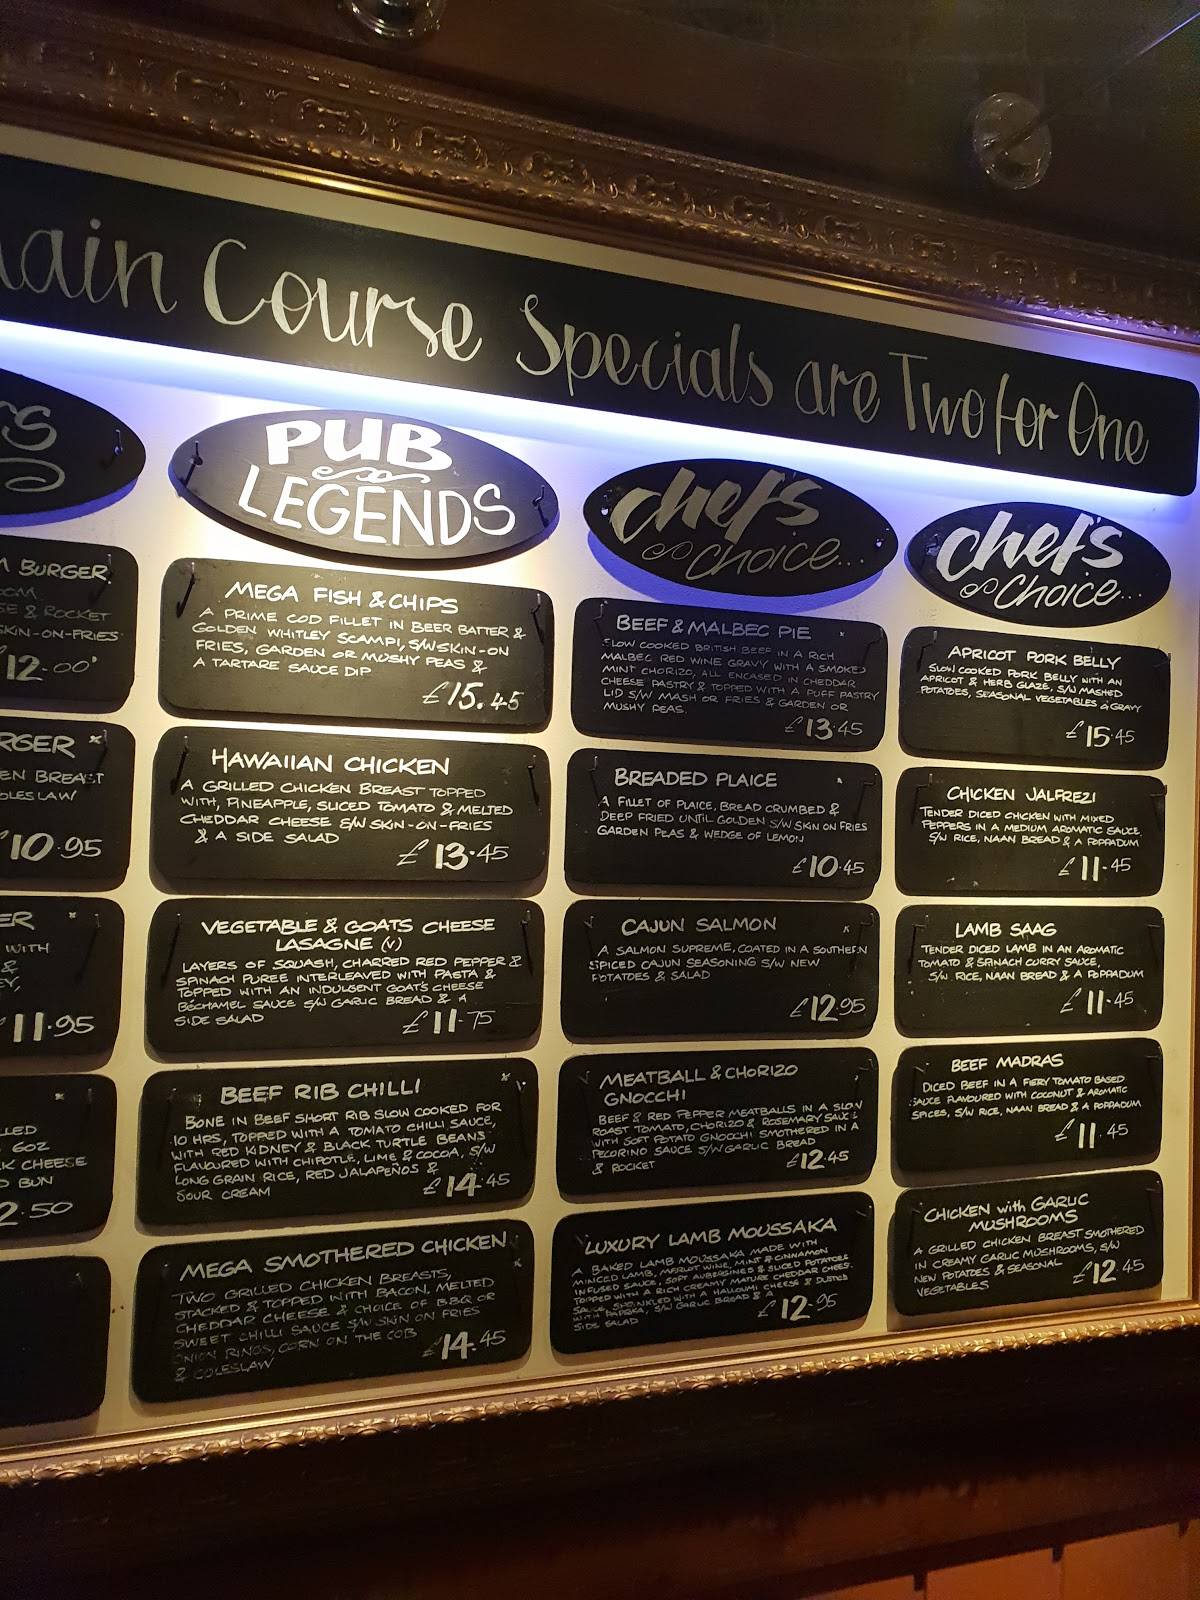 Main Course Specials are Two for One
RS
M BURGER
OCM
SE & ROCKET
SKIN-ON-FRIES
12.00
RGER
EN BREAST
OLESLAW
£10.95
ER
WITH
&
EY,
£11.95
LLED
6OZ
K CHEESE
D BUN
2.50
PUB
LEGENDS
MEGA FISH & CHIPS
A PRIME COD FILLET IN BEER BATTER &
GOLDEN WHITLEY SCAMPI, S/W SKIN-ON
FRIES, GARDEN OR MUSHY PEAS &
A TARTARE SAUCE DIP
£15.45
HAWAIIAN CHICKEN
A GRILLED CHICKEN BREAST TOPPED
WITH, PINEAPPLE, SLICED TOMATO & MELTED
CHEDDAR CHEESE S/W SKIN-ON-FRIES
& A SIDE SALAD
£13.45
VEGETABLE & GOATS CHEESE
LASAGNE (V)
LAYERS OF SQUASH, CHARRED RED PEPPER &
SPINACH PUREE INTERLEAVED WITH PASTA &
TOPPED WITH AN INDULGENT GOAT'S CHEESE
BÉCHAMEL SAUCE S/W GARLIC BREAD & A
SIDE SALAD
£11.75
BEEF RIB CHILLI
BONE IN BEEF SHORT RIB SLOW COOKED FOR
10 HRS, TOPPED WITH A TOMATO CHILLI SAUCE,
WITH RED KIDNEY & BLACK TURTLE BEANS
FLAVOURED WITH CHIPOTLE, LIME & COCOA, S/W
LONG GRAIN RICE, RED JALAPEÑOS &
SOUR CREAM
£14.45
MEGA SMOTHERED CHICKEN
TWO GRILLED CHICKEN BREASTS,
STACKED & TOPPED WITH BACON, MELTED
CHEDDAR CHEESE & CHOICE OF BBQ OR
SWEET CHILLI SAUCE S/W SKIN ON FRIES
ONION RINGS, CORN ON THE COB
& COLESLAW
£14.45
Chef's
Choice...
BEEF & MALBEC PIE
SLOW COOKED BRITISH BEEF IN A RICH
MALBEC RED WINE GRAVY WITH A SMOKED
MINT CHORIZO, ALL ENCASED IN CHEDDAR
CHEESE PASTRY & TOPPED WITH A PUFF PASTRY
LID S/W MASH OR FRIES & GARDEN OR
MUSHY PEAS.
£13.45
BREADED PLAICE
A FILLET OF PLAICE, BREAD CRUMBED &
DEEP FRIED UNTIL GOLDEN S/W SKIN ON FRIES
GARDEN PEAS & WEDGE OF LEMON
£10.45
CAJUN SALMON
A SALMON SUPREME, COATED IN A SOUTHERN
SPICED CAJUN SEASONING S/W NEW
POTATOES & SALAD
£12.95
MEATBALL & CHORIZO
GNOCCHI
BEEF & RED PEPPER MEATBALLS IN A SLOW
ROAST TOMATO, CHORIZO & ROSEMARY SAUCE
WITH SOFT POTATO GNOCCHI SMOTHERED IN A
PECORINO SAUCE S/W GARLIC BREAD
& ROCKET
£12.45
LUXURY LAMB MOUSSAKA
A BAKED LAMB MOUSSAKA MADE WITH
MINCED LAMB, MERLOT WINE, MINT & CINNAMON
INFUSED SAUCE, SOFT AUBERGINES & SLICED POTATOES
TOPPED WITH A RICH CREAMY MATURE CHEDDAR CHEESE
SAUCE, SPRINKLED WITH A HALLOUMI CHEESE & DUSTED
WITH PAPRIKA, S/W GARLIC BREAD & A
SIDE SALAD
£12.95
Chef's
Choice...
APRICOT PORK BELLY
SLOW COOKED PORK BELLY WITH AN
APRICOT & HERB GLAZE, S/W MASHED
POTATOES, SEASONAL VEGETABLES & GRAVY
£15.45
CHICKEN JALFREZI
TENDER DICED CHICKEN WITH MIXED
PEPPERS IN A MEDIUM AROMATIC SAUCE,
S/W RICE, NAAN BREAD & A POPPADUM
£11.45
LAMB SAAG
TENDER DICED LAMB IN AN AROMATIC
TOMATO & SPINACH CURRY SAUCE,
S/W RICE, NAAN BREAD & A POPPADUM
£11.45
BEEF MADRAS
DICED BEEF IN A FIERY TOMATO BASED
SAUCE FLAVOURED WITH COCONUT & AROMATIC
SPICES, S/W RICE, NAAN BREAD & A POPPADUM
£11.45
CHICKEN with GARLIC
MUSHROOMS
A GRILLED CHICKEN BREAST SMOTHERED
IN CREAMY GARLIC MUSHROOMS, S/W
NEW POTATOES & SEASONAL
VEGETABLES
£12.45